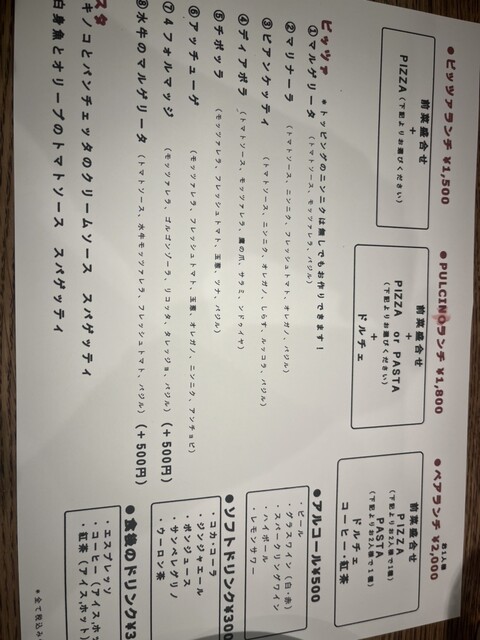 ●ピッツァランチ ¥1,500
前菜盛合せ
+
PIZZA (下記よりお選びください)
●PULCINOランチ ¥1,800
前菜盛合せ
+
PIZZA or PASTA
(下記よりお選びください)
+
ドルチェ
●ペアランチ ¥2,000
お1人様
前菜盛合せ
PIZZA
(下記よりお2人様で1種)
PASTA
(下記よりお2人様で1種)
ドルチェ
コーヒー・紅茶
ピッツァ *トッピングのニンニクは無しでもお作りできます!
①マルゲリータ (トマトソース、モッツァレラ、バジル)
②マリナーラ (トマトソース、ニンニク、フレッシュトマト、オレガノ、バジル)
③ビアンケッティ (トマトソース、ニンニク、オレガノ、しらす、ルッコラ、バジル)
④ディアボラ (トマトソース、モッツァレラ、鷹の爪、サラミ、ンドゥイヤ)
⑤チポッラ (モッツァレラ、フレッシュトマト、玉葱、ツナ、バジル)
⑥アッチューゲ (モッツァレラ、フレッシュトマト、玉葱、オレガノ、ニンニク、アンチョビ)
⑦4フォルマッジ (モッツァレラ、ゴルゴンゾーラ、リコッタ、タレッジョ、バジル) (+500円)
⑧水牛のマルゲリータ (トマトソース、水牛モッツァレラ、フレッシュトマト、バジル) (+500円)
スタ
キノコとパンチェッタのクリームソース スパゲッティ
白身魚とオリーブのトマトソース スパゲッティ
●アルコール¥500
・ビール
・グラスワイン (白・赤)
・スパークリングワイン
・ハイボール
・レモンサワー
●ソフトドリンク¥300
・コカ・コーラ
・ジンジャエール
・ポンジュース
・サンペレグリノ
・ウーロン茶
●食後のドリンク¥3
・エスプレッソ
・コーヒー (アイスホッ
・紅茶 (アイスホット)
*全て税込み